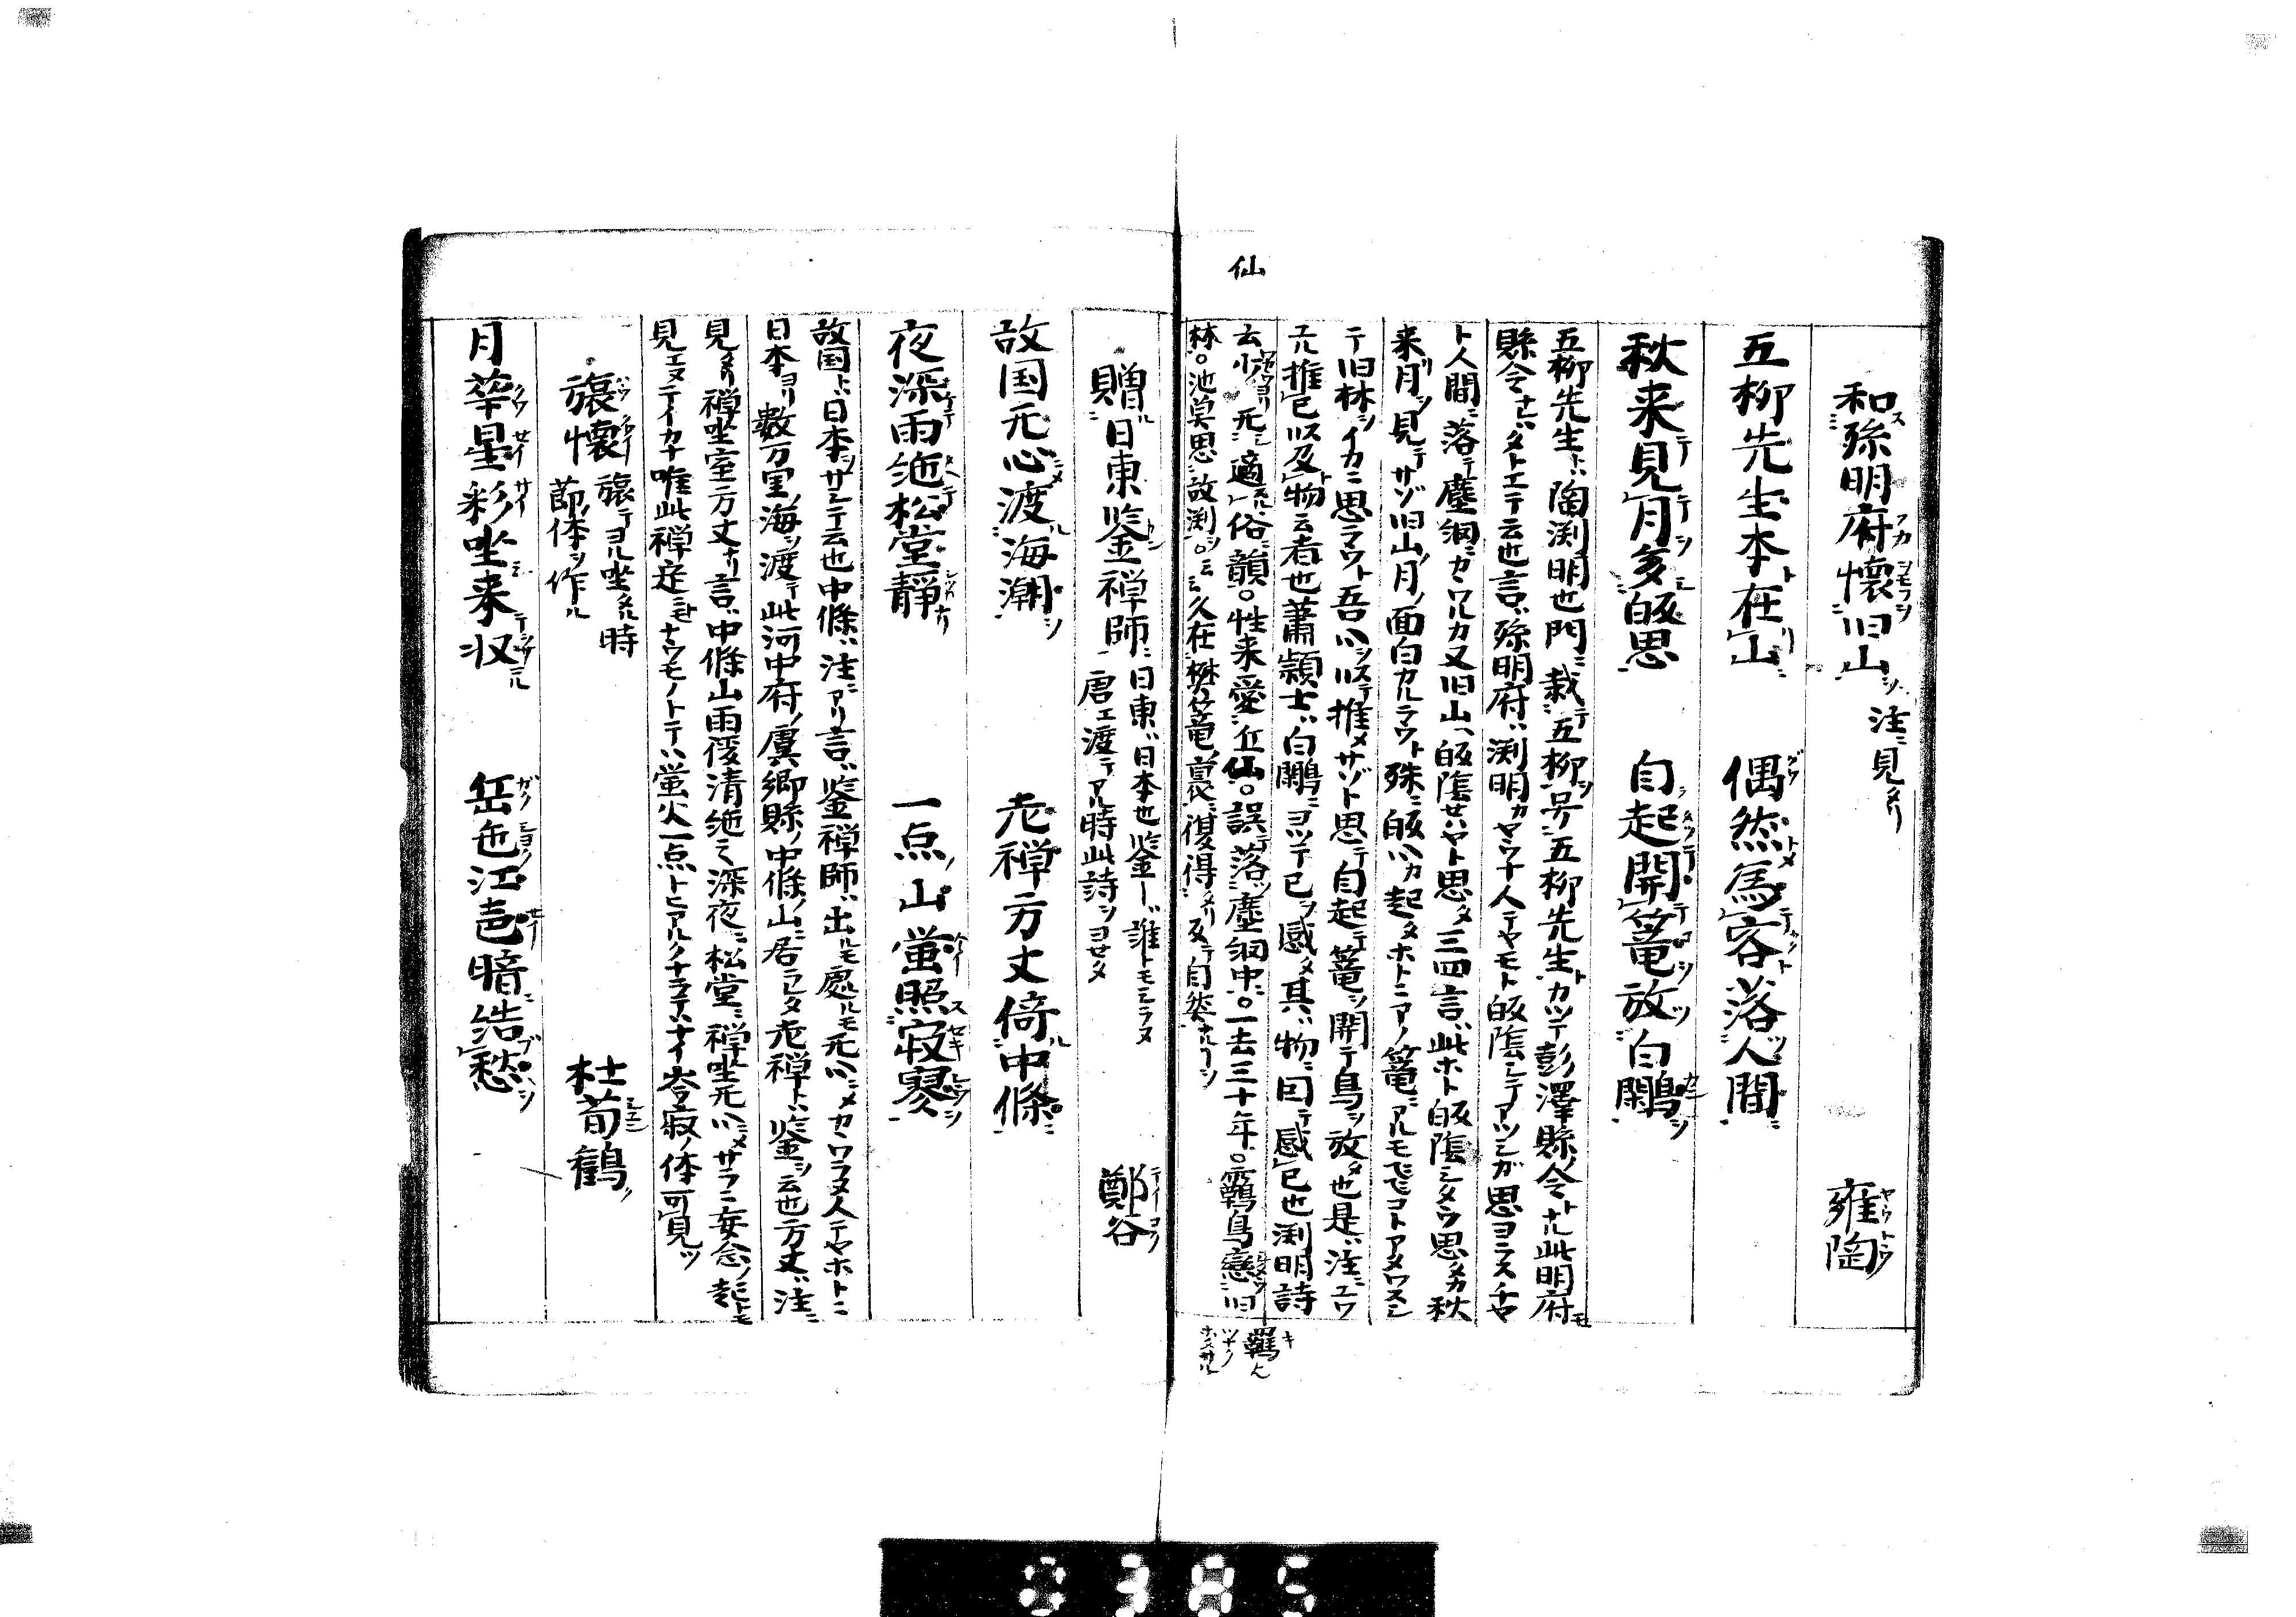 和孫明府懐旧山 注ニ見タリ 雍陶
五柳先生本在山 偶然為客落人間
秋来見月多皈思 自起開篭放白鷴
五柳先生トハ陶渕明也門ニ栽テ五柳ヲ号ス五柳先生トカツテ彭澤縣ノ令トナル此明府モ
縣令ナレバタトエテ云也言ハ孫明府ハ渕明カヤウナ人テヤモト皈隠シテアツシガ思ヨラスチヤ
ト人間ニ落テ塵網ニカヽルカ又旧山ヘ皈隠セハヤト思タ三四言ハ此ホト皈隠シタウ思タカ秋
来月ヲ見テサゾ旧山ノ月ノ面白カルラウト殊ニ皈ハカ起タホトニアノ篭ニアルモ
テ旧林ヲイカニ思ラウト吾心ヲ以テ推メサゾト思テ自起テ篭ヲ開テ鳥ヲ放タ也是ハ注ニユウ
エル推已以及物云者也蕭頴士ハ白鷴ニヨツテ已ヲ感タ其ハ物ニ因テ感已也渕明詩
云少无適俗韻。性来愛丘仙。誤落塵網中。一去三十年。羈鳥戀旧
林。池魚思故渕。云々久在樊篭裏復得反自然
仙
羈
キ
ツナク
贈日東鑒禅師 日東ハ日本也鑒ーハ誰トモシラヌ 鄭谷
唐エ渡テアル時此詩ヲヨセタ
故国无心渡海潮 老禅方丈倚中條
夜深雨絶松堂靜 一点山蛍照寂寥
故国トハ日本ヲサシテ云也中條ハ注ニアリ言ハ鑒禅師ハ出ルモ處ルモ无心ニメカヽワラヌ人テヤホトニ
日本ヨリ數万里ノ海ヲ渡テ此河中府ノ虞郷縣ノ中條山ニ居ラレタ老禅トハ鑒ヲ云也方丈ハ注ニ
見タリ禅坐室方丈ナリ言ハ中條山雨後清絶ニ深夜ニ松堂ニ禅坐无心ニメサラニ妄念ノ起トモ
見エヌテイカナ唯此禅定ニセナウモノトテハ蛍火一点トヒアルクナラデハナイ岑寂ノ体可見ツ
旅懐 旅テヨル坐タル時 杜荀鶴
節ノ体ヲ作ル
月華星彩坐来収 岳色江声暗結愁